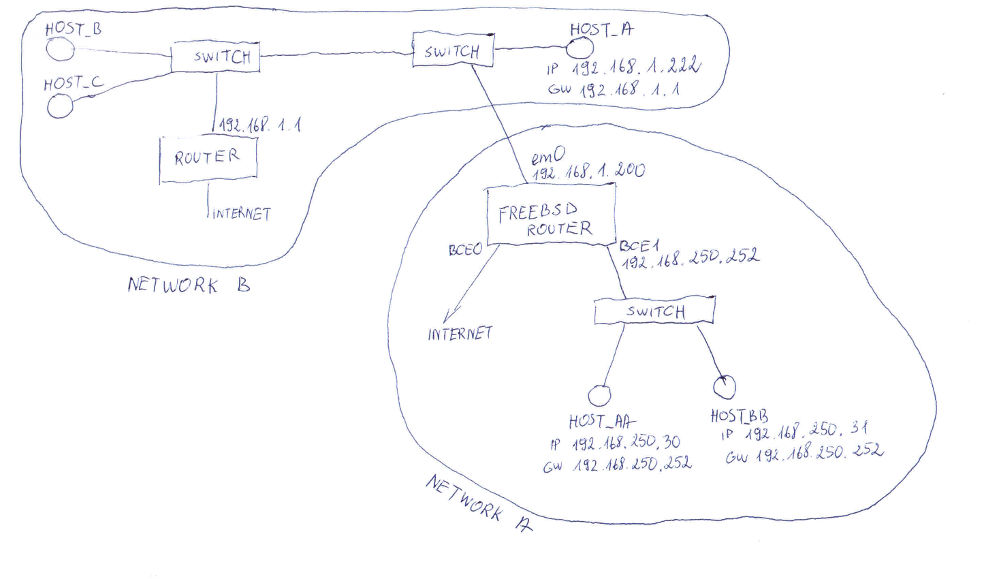 HOST_B
SWITCH
SWITCH
HOST_A
IP 192.168.1.222
GW 192.168.1.1
HOST_C
192.168.1.1
ROUTER
INTERNET
NETWORK B
em0
192.168.1.200
FREEBSD
ROUTER
BCE0
BCE1
192.168.250.252
INTERNET
SWITCH
HOST_AA
IP 192.168.250.30
GW 192.168.250.252
HOST_BB
IP 192.168.250.31
GW 192.168.250.252
NETWORK A